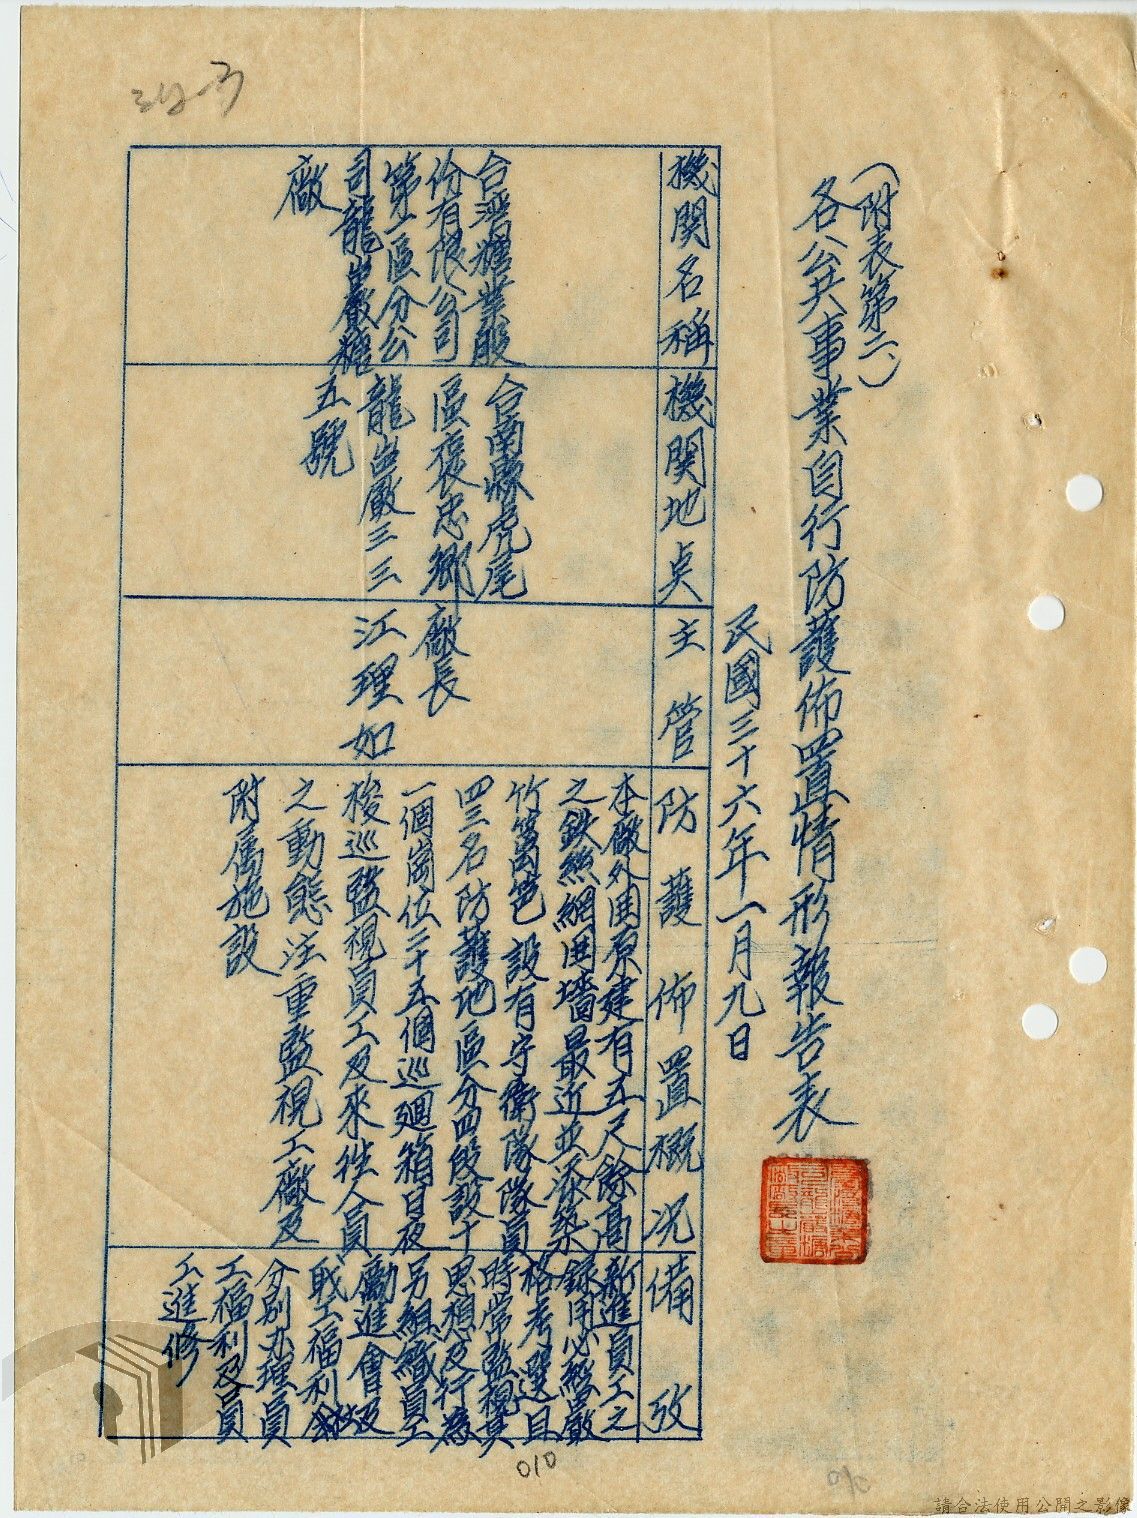 (附表第二)
各公共事業自行防護佈置情形報告表
民國三十六年一月九日
機関名稱
台湾糖業股
份有限公司
第一區分公
司龍岩厰糖
廠
機関地点
台南縣虎尾
區褒忠鄉
龍岩厰三三
五號
主管
廠長
江理如
防護佈置概况
本廠外囲原建有五尺餘高
之鉄絲網囲墻最近並添築
竹籬笆設有守衛隊隊員
四三名防護地區分四段設十
一個崗位二十五個巡廻箱日夜
梭巡監視員工及來往人員
之動態注重監視工廠及
附属施設
備攷
新進員工之
錄用必經嚴
格考選且
時常監視其
思想及行為
另組織員工
勵進會及
戰工福利
分別办理員
工福利及員
工進修
010
請合法使用公開之影像